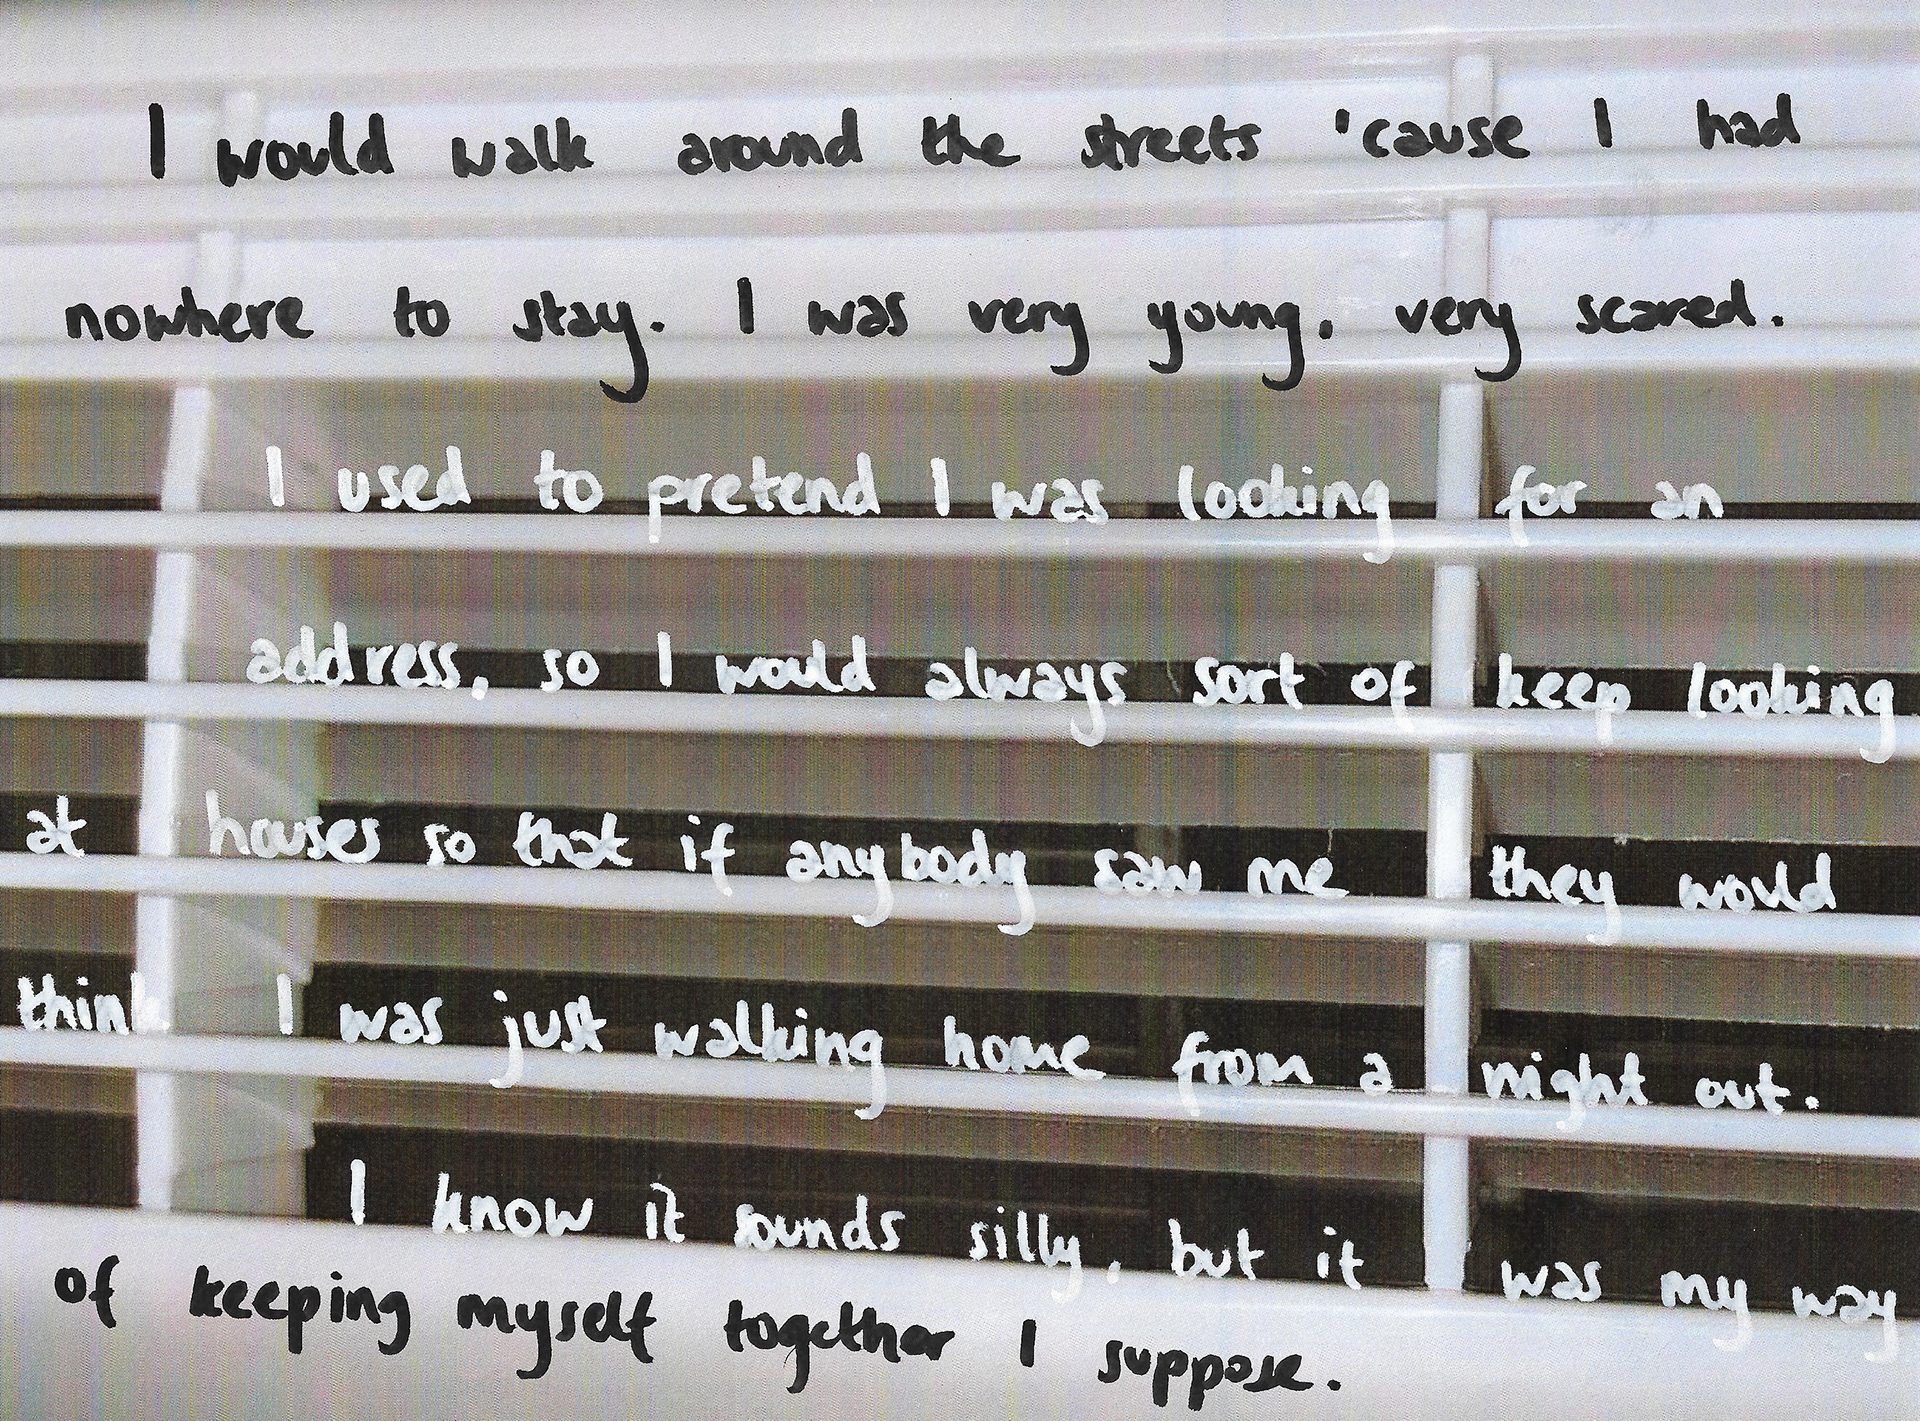 I would walk around the streets 'cause I had
nowhere to stay. I was very young, very scared.
I used to pretend I was looking for an
address, so I would always sort of keep looking
at houses so that if anybody saw me they would
think I was just walking home from a night out.
I know it sounds silly, but it was my way
of keeping myself together I suppose.